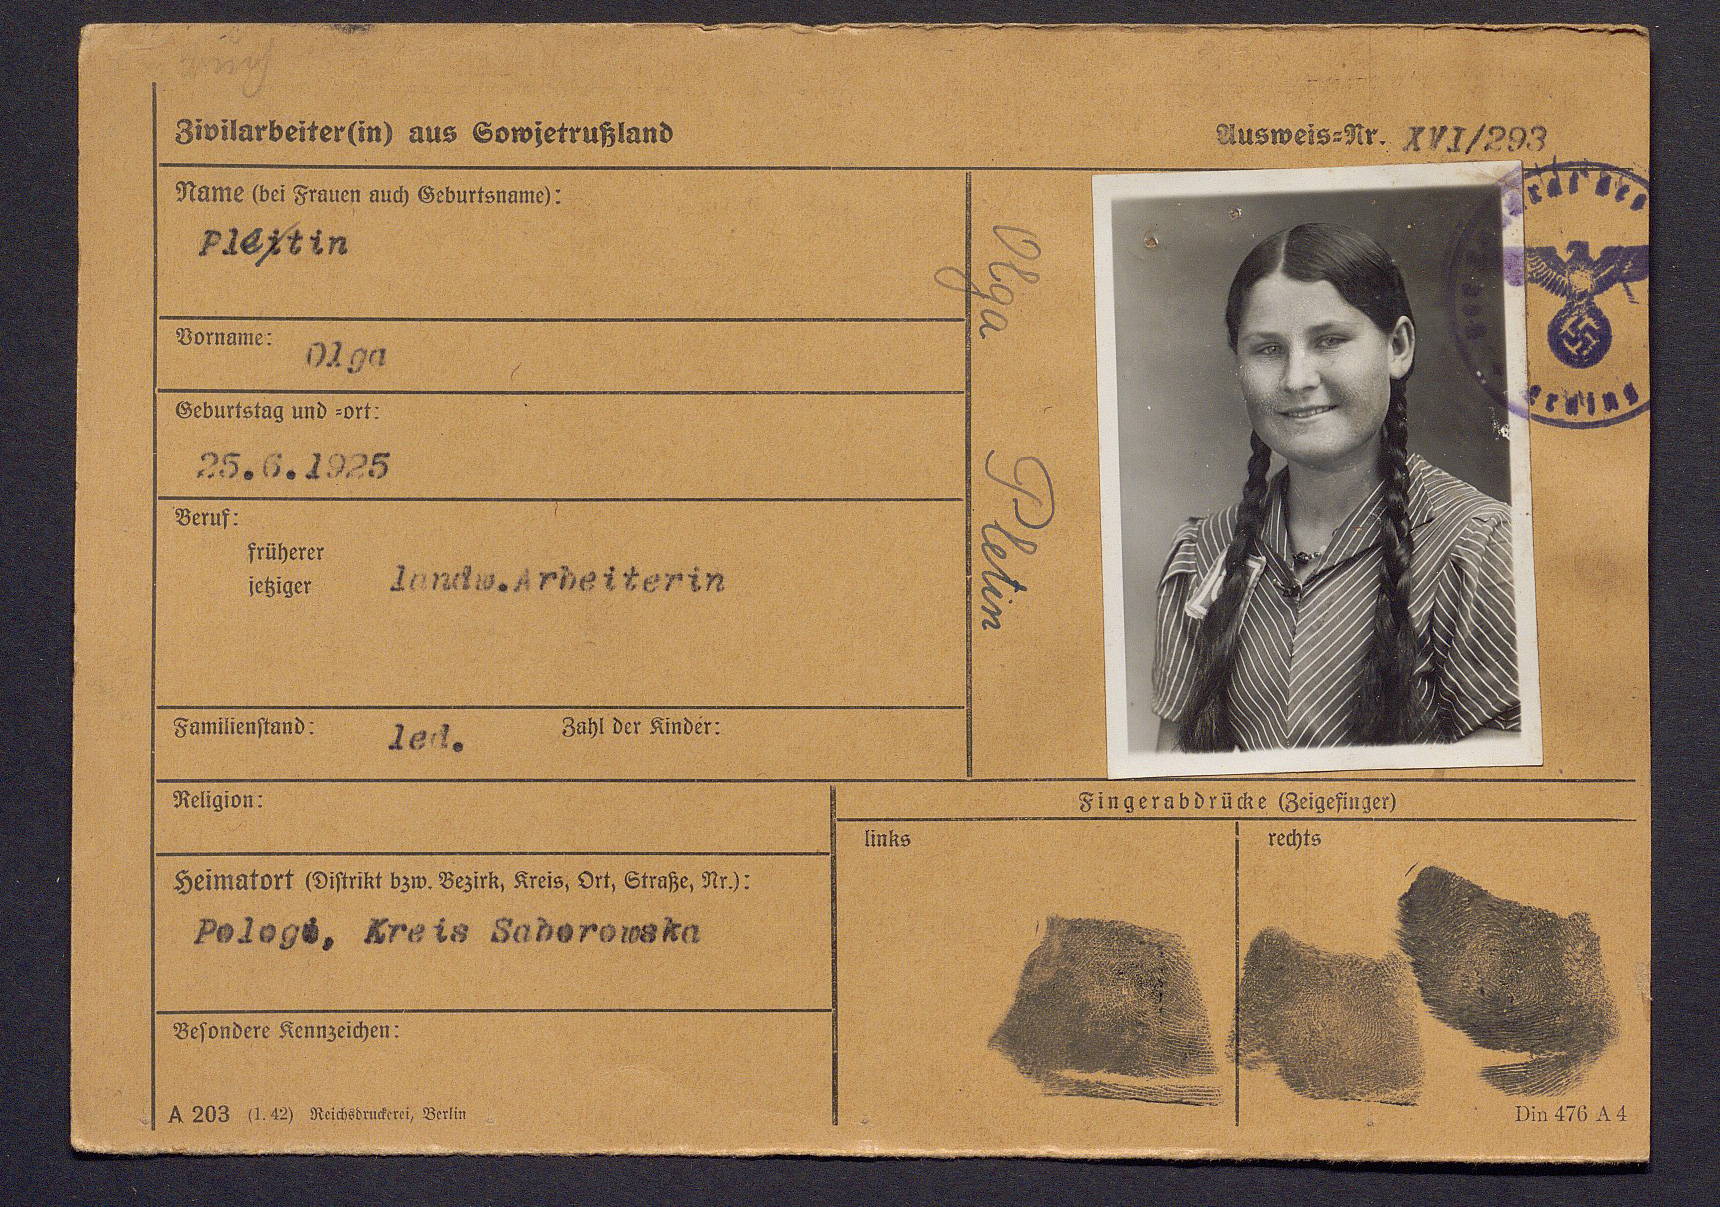 Zivilarbeiter(in) aus Sowjetrußland
Ausweis=Nr. XVI/293
Name (bei Frauen auch Geburtsname):
Pletin
Vorname: Olga
Geburtstag und =ort:
25.6.1925
Beruf:
früherer
jetziger landw.Arbeiterin
Familienstand: led. Zahl der Kinder:
Olga Pletin
Religion:
Heimatort (Distrikt bzw. Bezirk, Kreis, Ort, Straße, Nr.):
Pologi, Kreis Saborowska
Besondere Kennzeichen:
Fingerabdrücke (Zeigefinger)
links
rechts
A 203 (1. 42) Reichsdruckerei, Berlin
Din 476 A 4